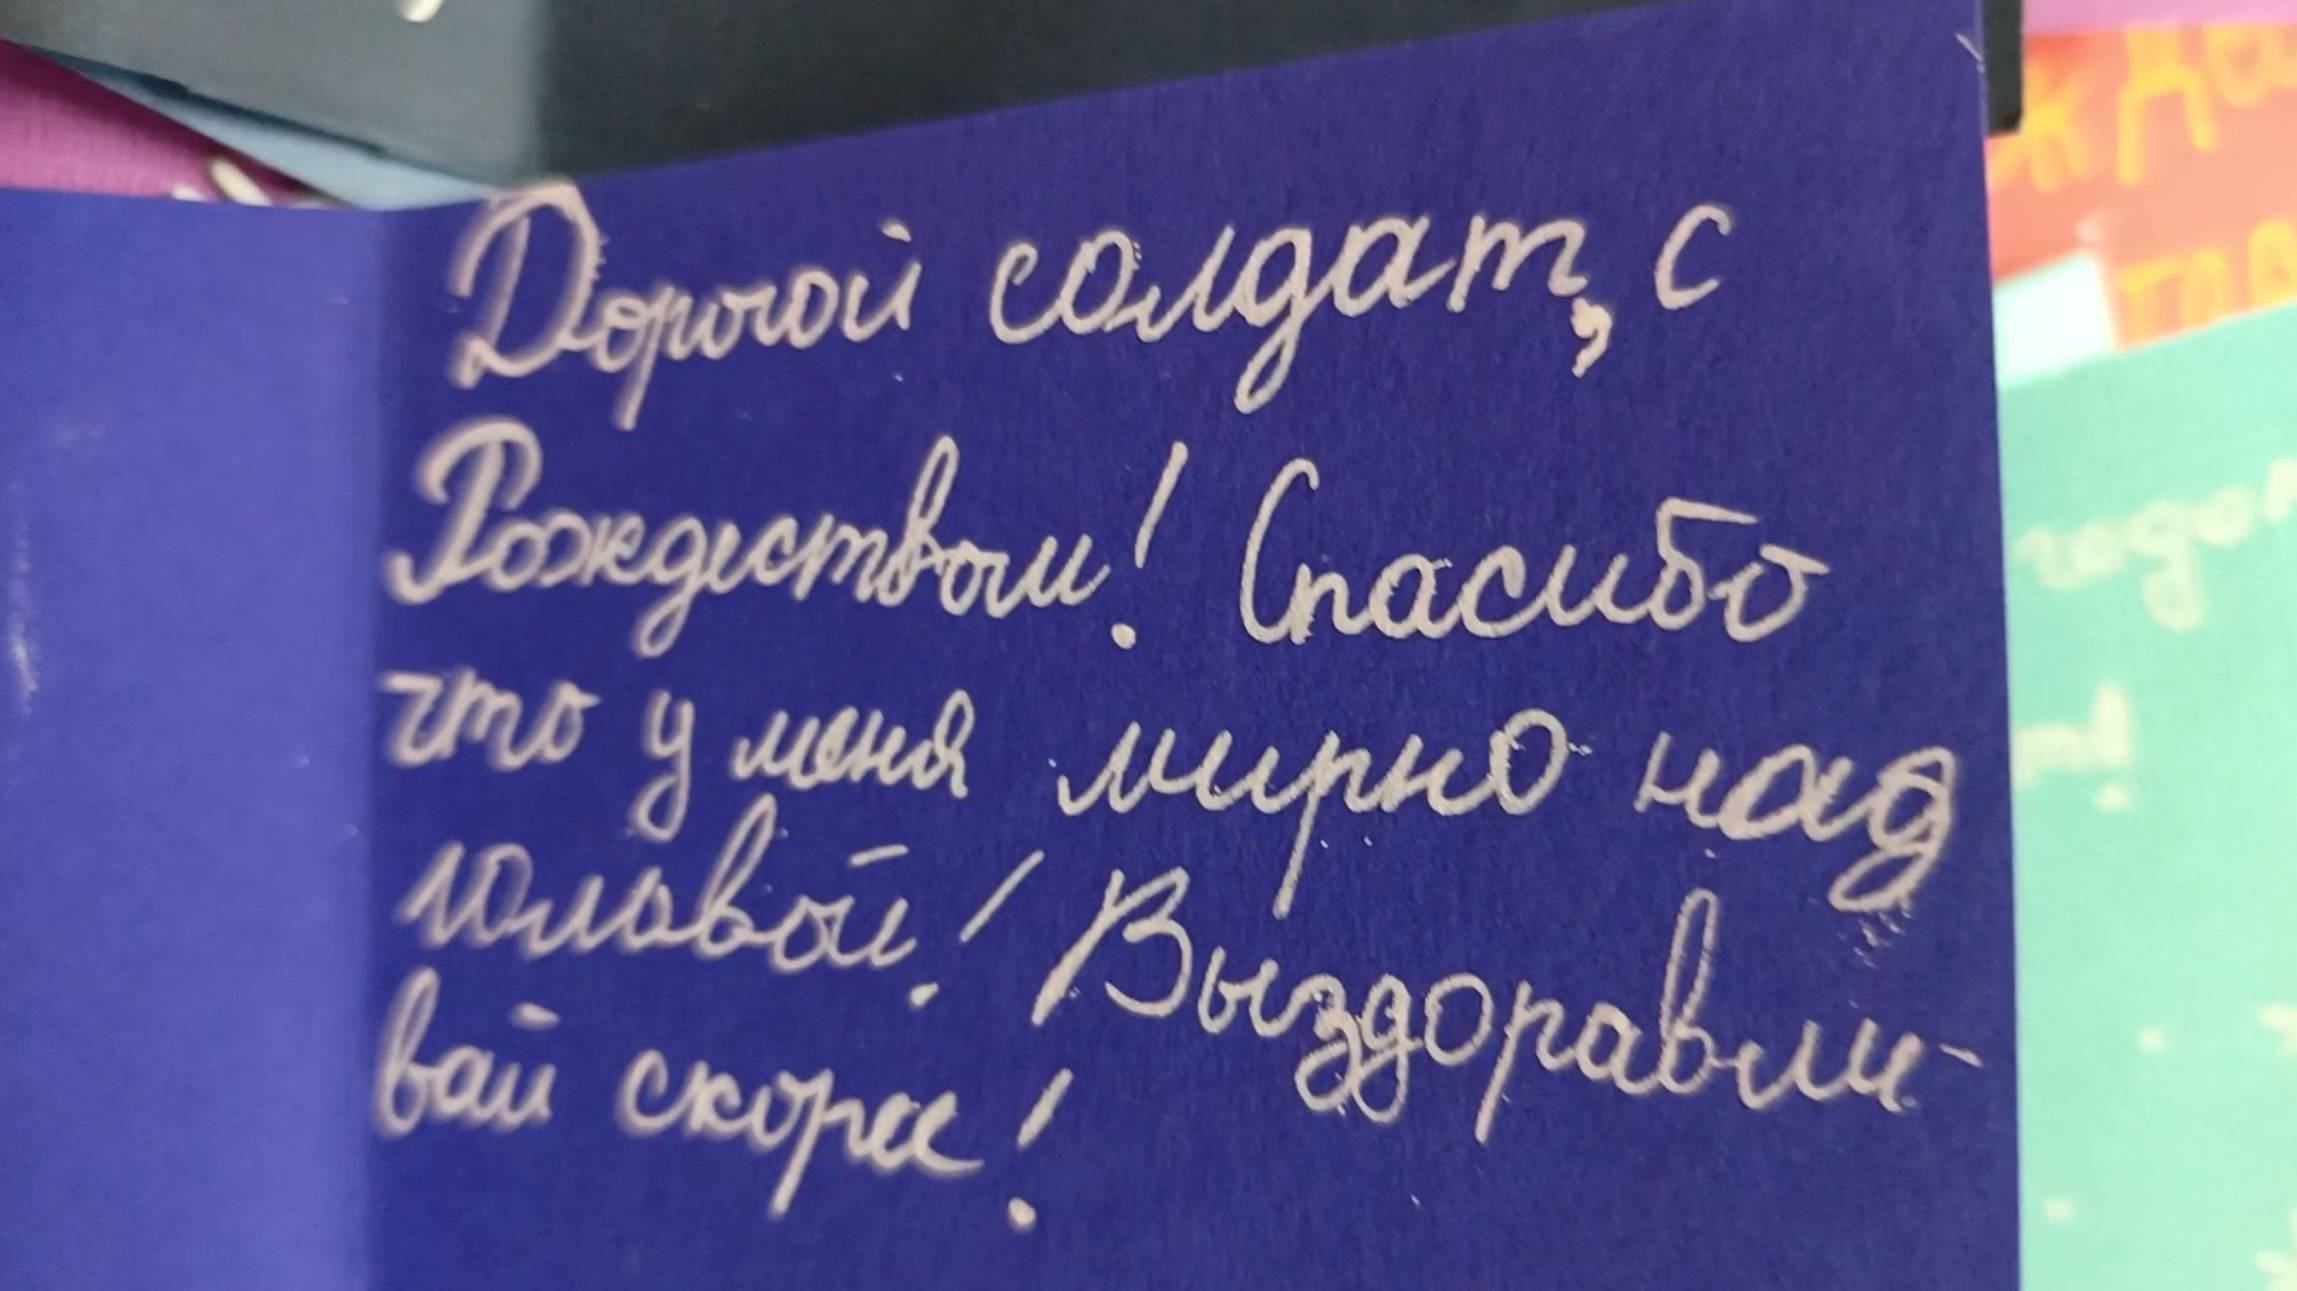 Дорогой солдат, с
Рождеством! Спасибо
что у меня мирно над
головой! Выздоравли-
вай скорее!